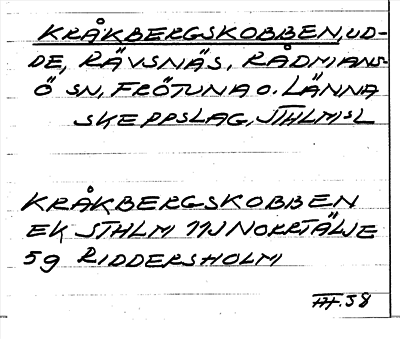 KRÅKBERGSKOBBEN, UD-
DE, RÄVSNÄS, RÅDMANS-
Ö SN, FRÖTUNA O. LÄNNA
SKEPPSLAG, STHLMSL
KRÅKBERGSKOBBEN
EK STHLM 11J NORRTÄLJE
5g RIDDERSHOLM
58